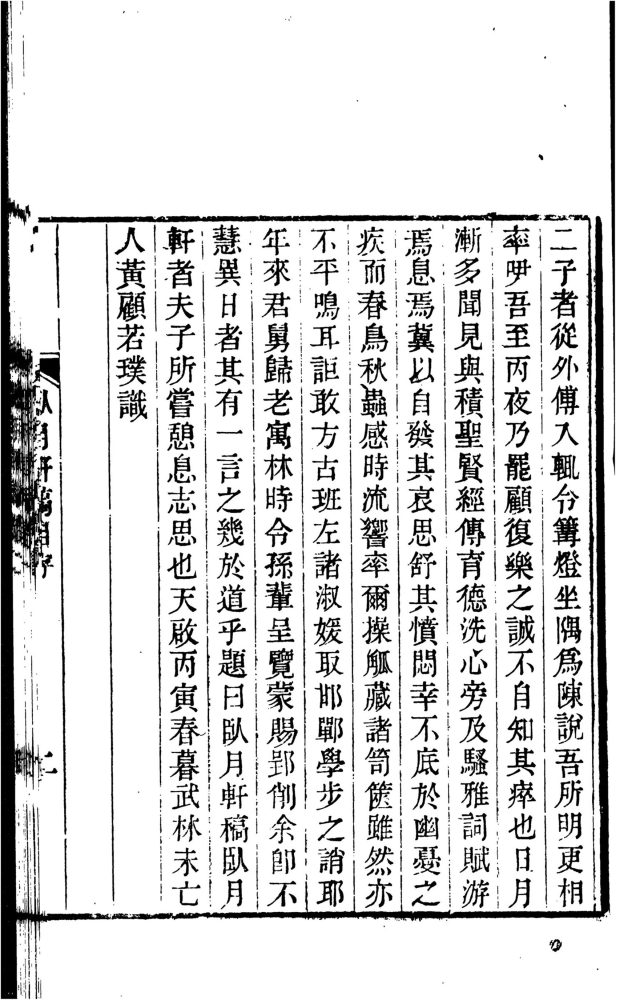 二子者從外傅入輒令篝燈坐隅爲陳說吾所明更相
率吚吾至丙夜乃罷顧復樂之誠不自知其瘁也日月
漸多聞見與積聖賢經傳育德洗心旁及騷雅詞賦游
焉息焉冀以自發其哀思舒其憤悶幸不底於幽憂之
疾而春鳥秋蟲感時流響率爾操觚藏諸笥篋雖然亦
不平鳴耳詎敢方古班左諸淑媛取邯鄲學步之誚耶
年來君舅歸老寓林時令孫輩呈覽蒙賜郢削余卽不
慧異日者其有一言之幾於道乎題曰臥月軒稿臥月
軒者夫子所嘗憩息志思也天啟丙寅春暮武林未亡
人黃顧若璞識
臥月軒稿自序
二